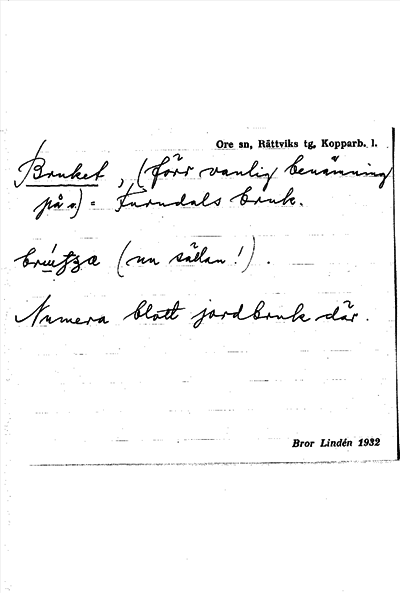 Ore sn, Rättviks tg, Kopparb. l.
Bruket, (förr vanlig benämning
på) = Furudals bruk.
(nu sällan!).
Numera blott jordbruk där.
Bror Lindén 1932